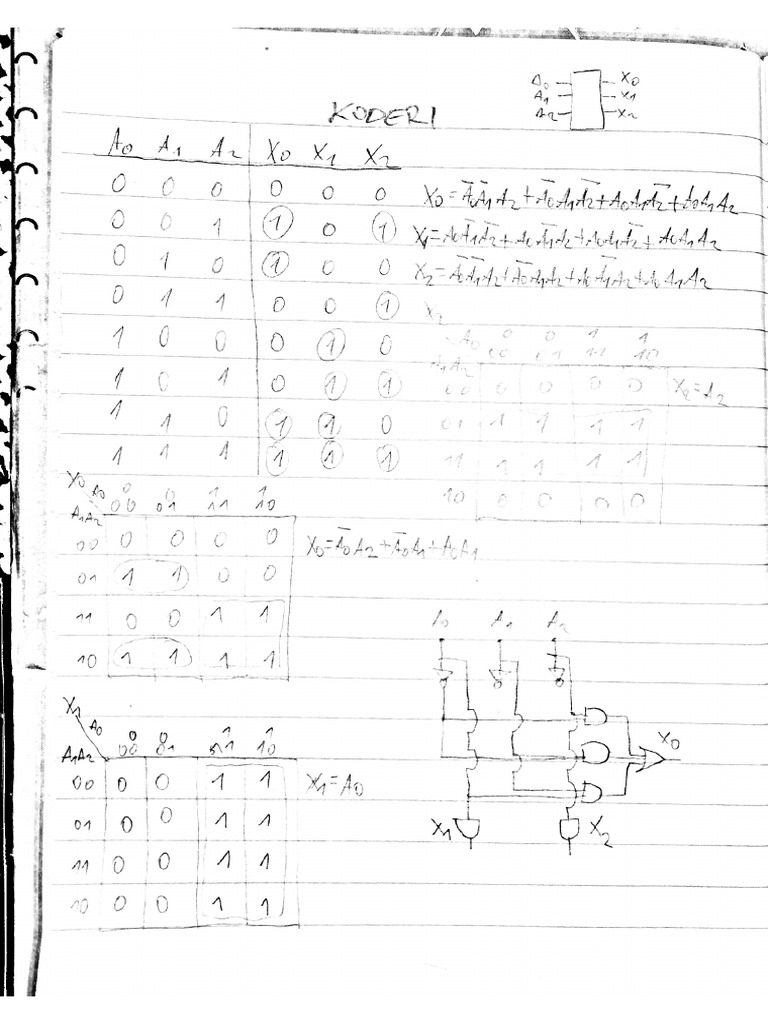 A0 X0
A1 X1
A2 X2
KODERI
A0 A1 A2 X0 X1 X2
0 0 0 0 0 0
0 0 1 1 0 1
0 1 0 1 0 0
0 1 1 0 0 1
1 0 0 0 1 0
1 0 1 0 1 1
1 1 0 1 1 0
1 1 1 1 1 1
X0=A̅0A̅1A2+A̅0A1A̅2+A0A1A̅2+A0A1A2
X1=A0A̅1A̅2+A0A̅1A2+A0A1A̅2+A0A1A2
X2=A̅0A̅1A2+A̅0A1A2+A0A̅1A2+A0A1A2
X2
A0 0 0 1 1
A1A2 00 01 11 10
00 0 0 0 0
01 1 1 1 1
11 1 1 1 1
10 0 0 0 0
X2=A2
X0 A0 0 0 1 1
A1A2 00 01 11 10
00 0 0 0 0
01 1 1 0 0
11 0 0 1 1
10 1 1 1 1
X0=A̅0A2+A̅0A1+A0A1
A0 A1 A2
X0
X1 X2
X1 A0 0 0 1 1
A1A2 00 01 11 10
00 0 0 1 1
01 0 0 1 1
11 0 0 1 1
10 0 0 1 1
X1=A0